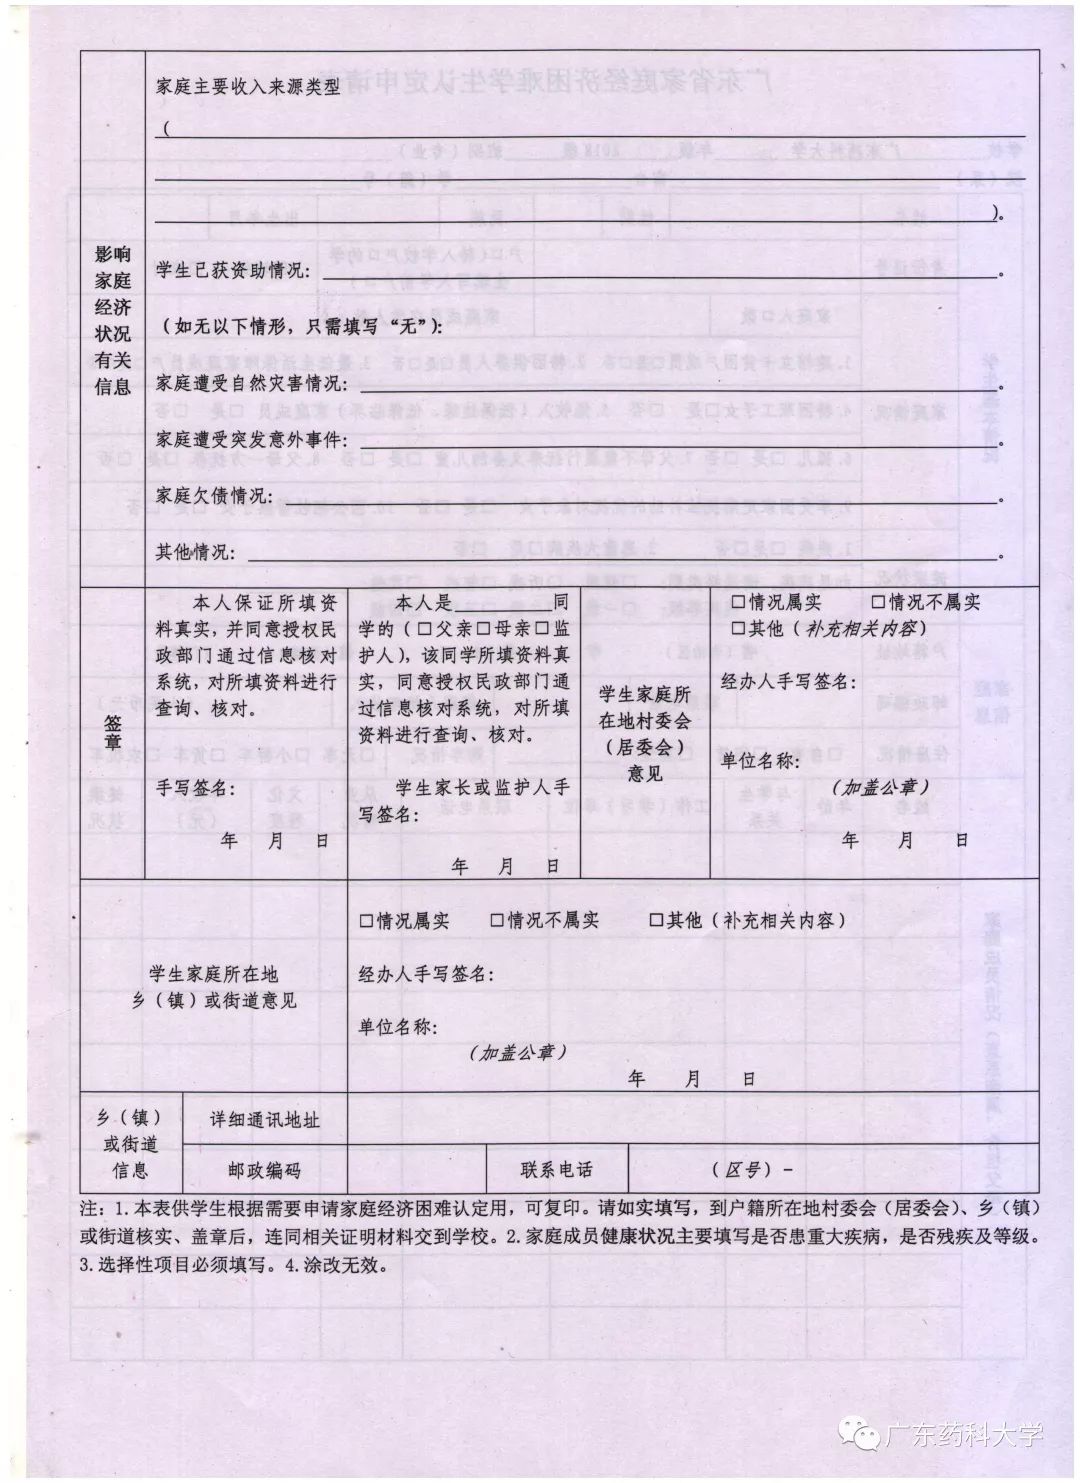 家庭主要收入来源类型
（
）。
影响
家庭
经济
状况
有关
信息
学生已获资助情况：。
（如无以下情形，只需填写“无”）：
家庭遭受自然灾害情况：。
家庭遭受突发意外事件：。
家庭欠债情况：。
其他情况：。
签
章
本人保证所填资
料真实，并同意授权民
政部门通过信息核对
系统，对所填资料进行
查询、核对。
手写签名：
年 月 日
本人是 同
学的（□父亲□母亲□监
护人），该同学所填资料真
实，同意授权民政部门通
过信息核对系统，对所填
资料进行查询、核对。
学生家长或监护人手
写签名：
年 月 日
学生家庭所
在地村委会
（居委会）
意见
□情况属实 □情况不属实
□其他（补充相关内容）
经办人手写签名：
单位名称：
（加盖公章）
年 月 日
学生家庭所在地
乡（镇）或街道意见
□情况属实 □情况不属实 □其他（补充相关内容）
经办人手写签名：
单位名称：
（加盖公章）
年 月 日
乡（镇）
或街道
信息
详细通讯地址
邮政编码
联系电话
（区号）-
注：1.本表供学生根据需要申请家庭经济困难认定用，可复印。请如实填写，到户籍所在地村委会（居委会）、乡（镇）
或街道核实、盖章后，连同相关证明材料交到学校。2.家庭成员健康状况主要填写是否患重大疾病，是否残疾及等级。
3.选择性项目必须填写。4.涂改无效。
广东药科大学